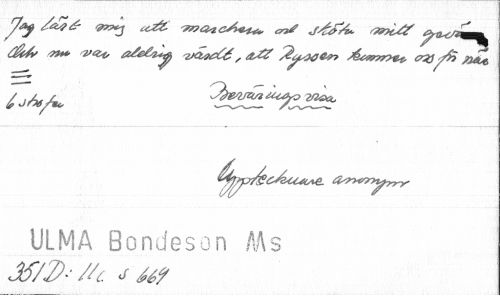 Jag lärt mig att marchera och sköta mitt gevä
Och nu var aldrig värdt, att Ryssen kommer oss för när
6 strofer
Beväringsvisa
Upptecknare anonym
ULMA Bondeson Ms
351 D: 11c s 669